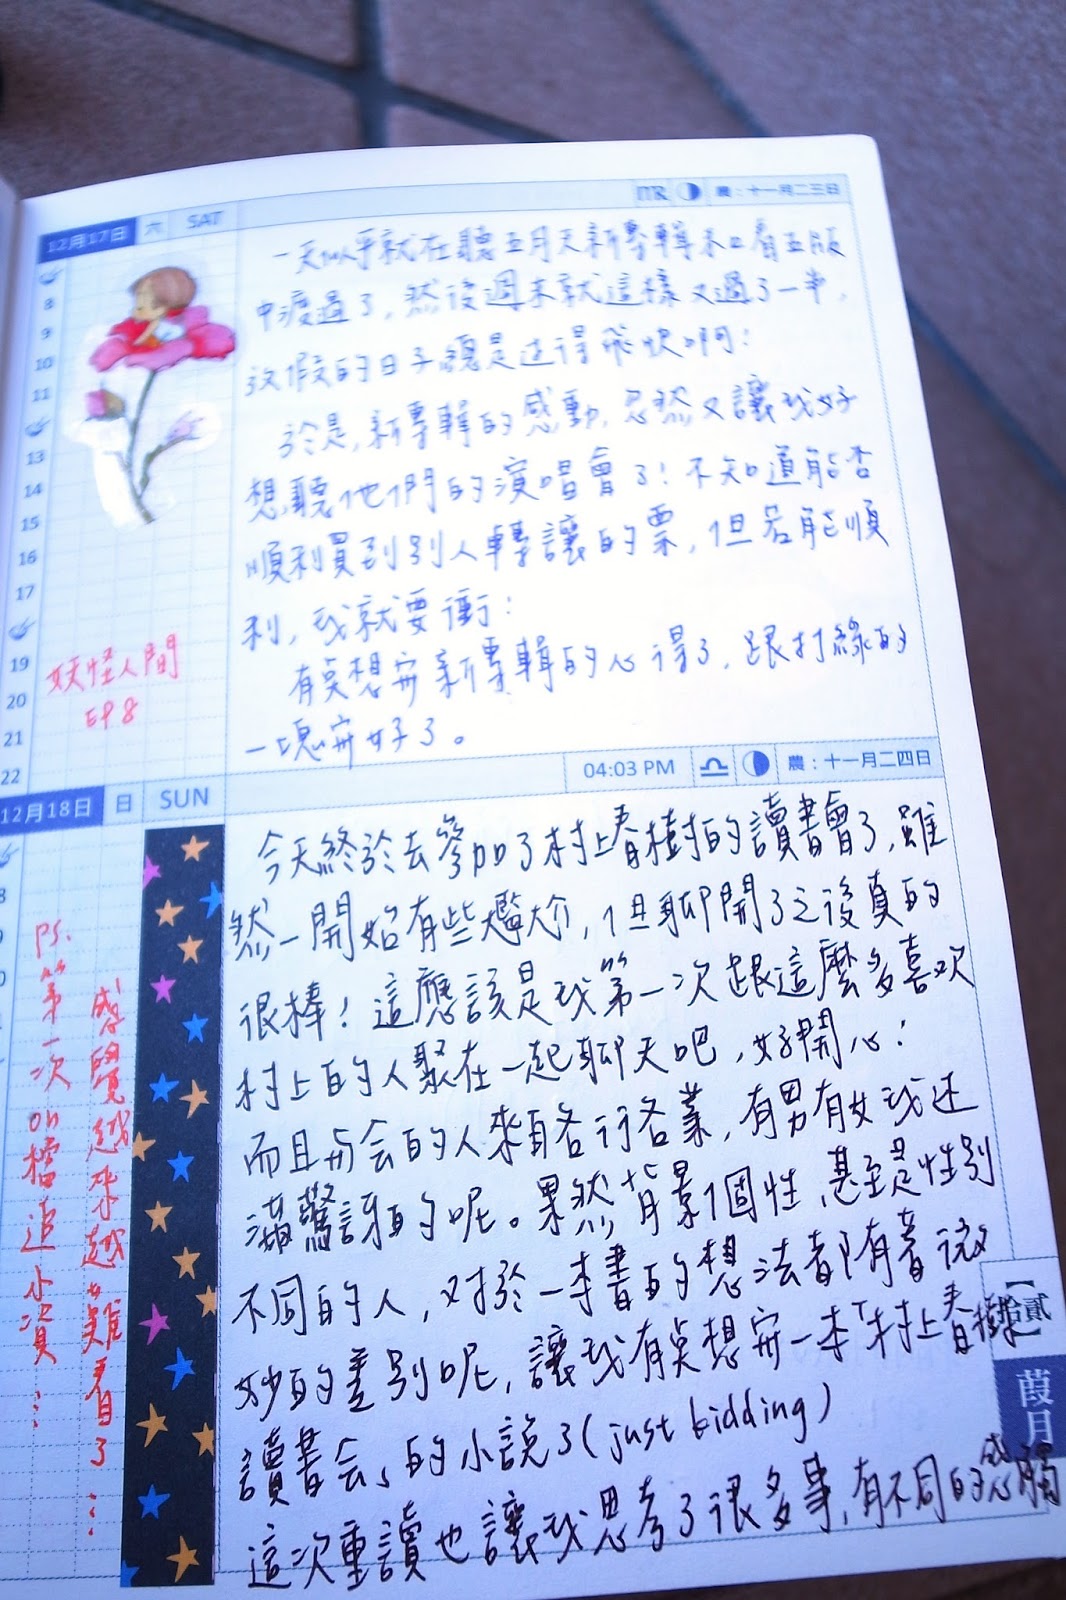 12月17日 六 SAT
♍ 農：十一月二三日
8
9
10
11
13
14
15
16
17
19
20
21
22
一天似乎就在聽五月天新專輯和口看五版
中渡過了，然後週末就這樣又過了一半，
放假的日子總是过得飛快啊！
於是，新專輯的感動，忽然又讓我好
想聽他們的演唱會了！不知道能否
順利買到別人轉讓的票，但若能順
利，我就要衝！
有莫想寫新專輯的心得了，跟打線的
一塊寫好了。
妖怪人間
EP8
04:03 PM ♎ 農：十一月二四日
12月18日 日 SUN
今天終於去參加了村上春樹的讀書會了，雖
然一開始有些尷尬，但聊開了之後真的
很棒！這應該是我第一次跟這麼多喜欢
村上的人聚在一起聊天吧，好開心！
而且与会的人來自各行各業，有男有女我还
滿驚訝的呢。果然背景個性，甚至是性別
不同的人，对於一本書的想法都有著微
妙的差別呢，讓我有莫想寫一本「村上春樹
讀書会」的小說了(just kidding)
這次重讀也讓我思考了很多事，有不同的感觸
PS.第一次on檔追小資...
感覺越來越難看了...
【拾貳】
葭月